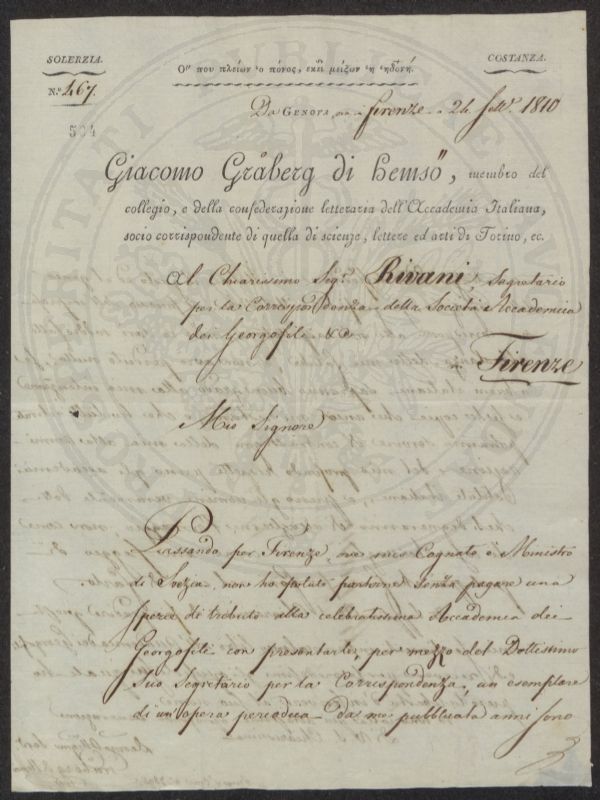 SOLERZIA.
Οὗ που πλείων ὁ πόνος, ἐκεῖ μείζων ἡ ἡδονή.
COSTANZA.
N.º 467.
504
Da GENOVA, ora in Firenze a 24 Sett.e 1810
Giacomo Gråberg di Hemsö, membro del
collegio, e della confederazione letteraria dell'Accademia Italiana,
socio corrispondente di quella di scienze, lettere ed arti di Torino, ec.
Al Chiarissimo Sig.r Rivani, Segretario
per la Corrispondenza della Società Accademica
dei Georgofili &c
Firenze
Mio Signore
Passando per Firenze, mio Cognato e Ministro
di Svezia, non ho potuto partirne senza pagare una
specie di tributo alla celebratissima Accademia dei
Georgofili con presentarle, per mezzo del Dottissimo
Suo Segretario per la Corrispondenza, un esemplare
di un'opera periodica da me pubblicata anni sono